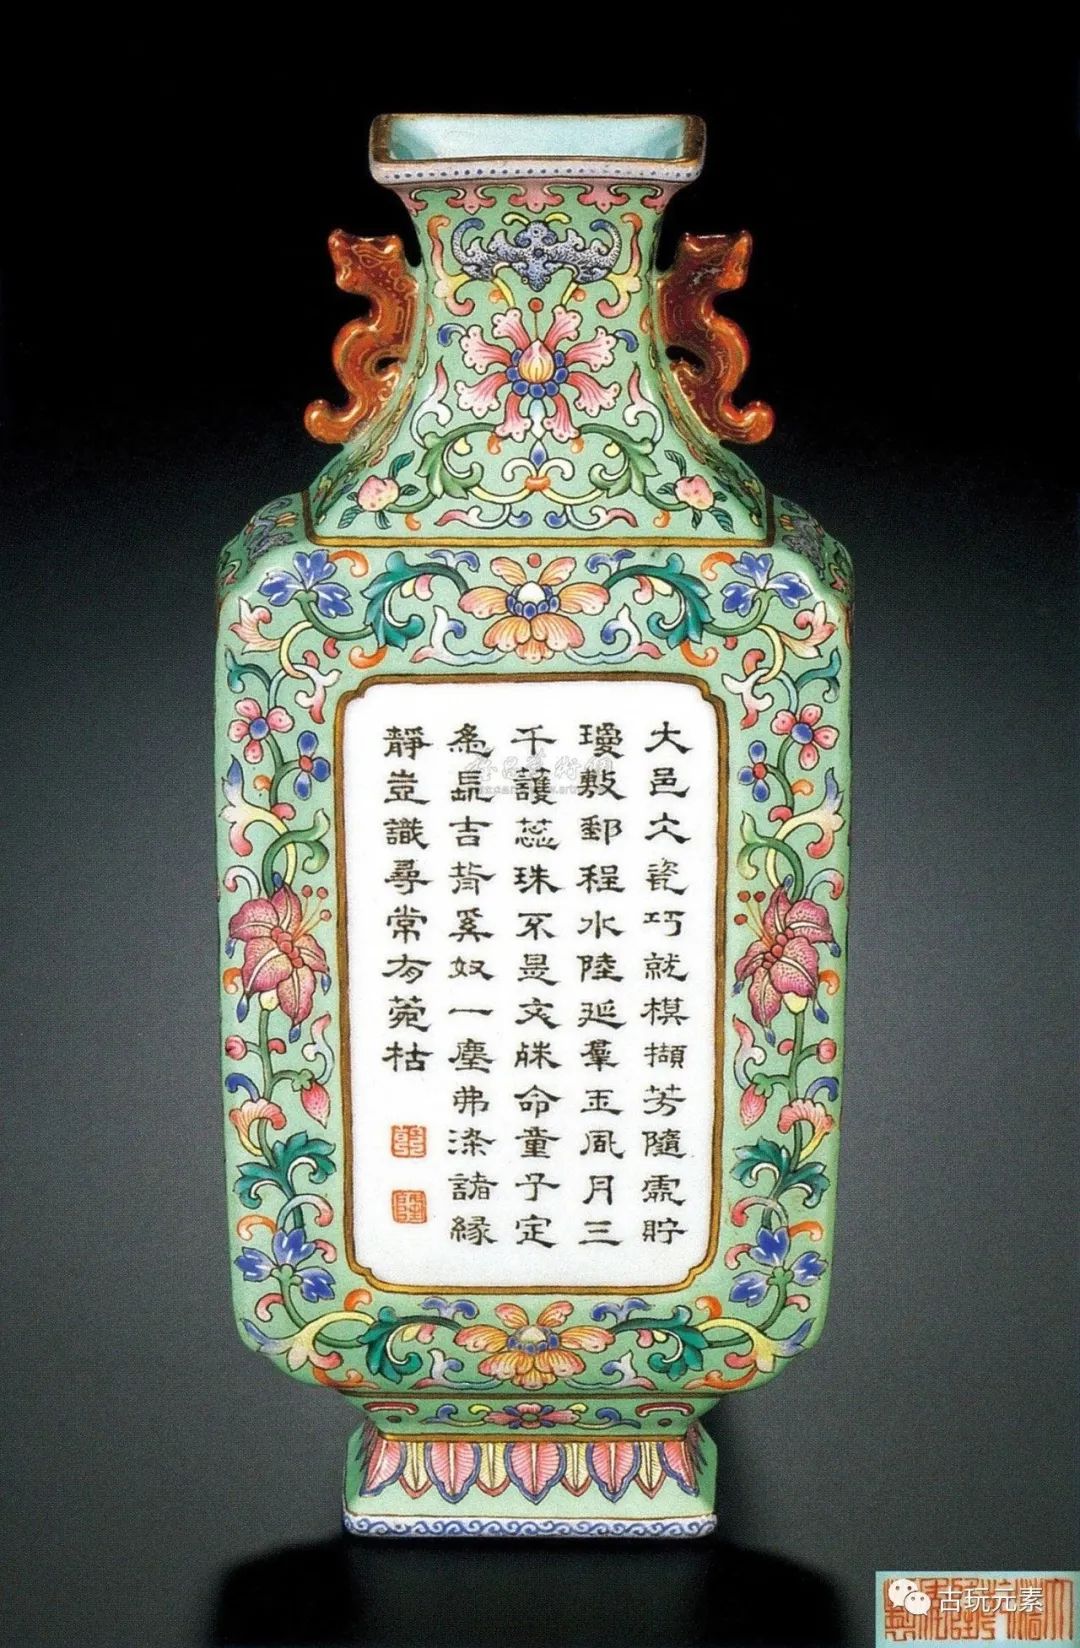 大邑仌瓷巧就模擷芳隨處貯
瓊敷郵程水陸延羣玉風月三
千護蕊珠不是文殊命童子定
為長吉背奚奴一塵弗染諸緣
靜豈識尋常有菀枯
乾
隆
古玩元素